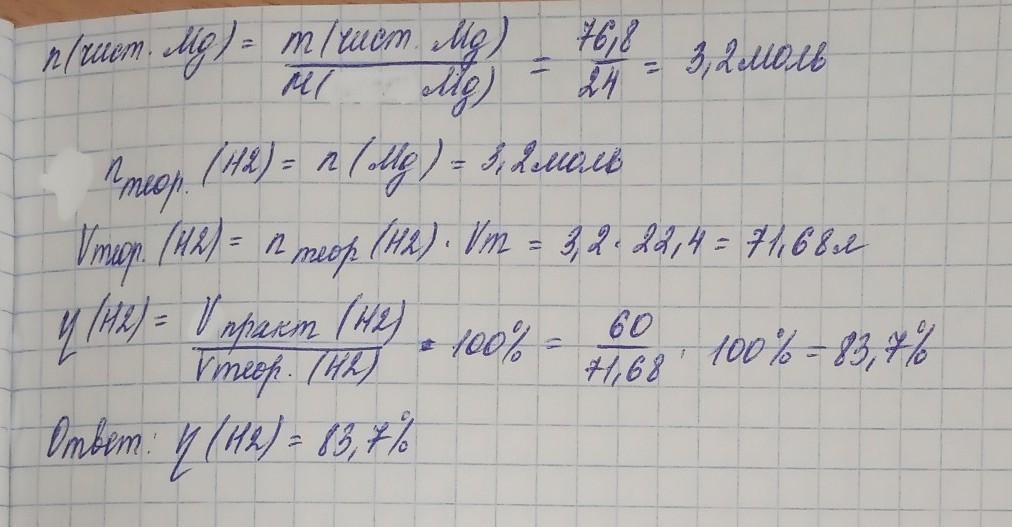 n(чист. Mg) = m(чист. Mg) / M( Mg) = 76,8 / 24 = 3,2 моль
n теор. (H2) = n (Mg) = 3,2 моль
Vтеор. (H2) = n теор (H2) · Vm = 3,2 · 22,4 = 71,68 л
η (H2) = V практ (H2) / Vтеор. (H2) · 100% = 60 / 71,68 · 100% = 83,7%
Ответ: η (H2) = 83,7%